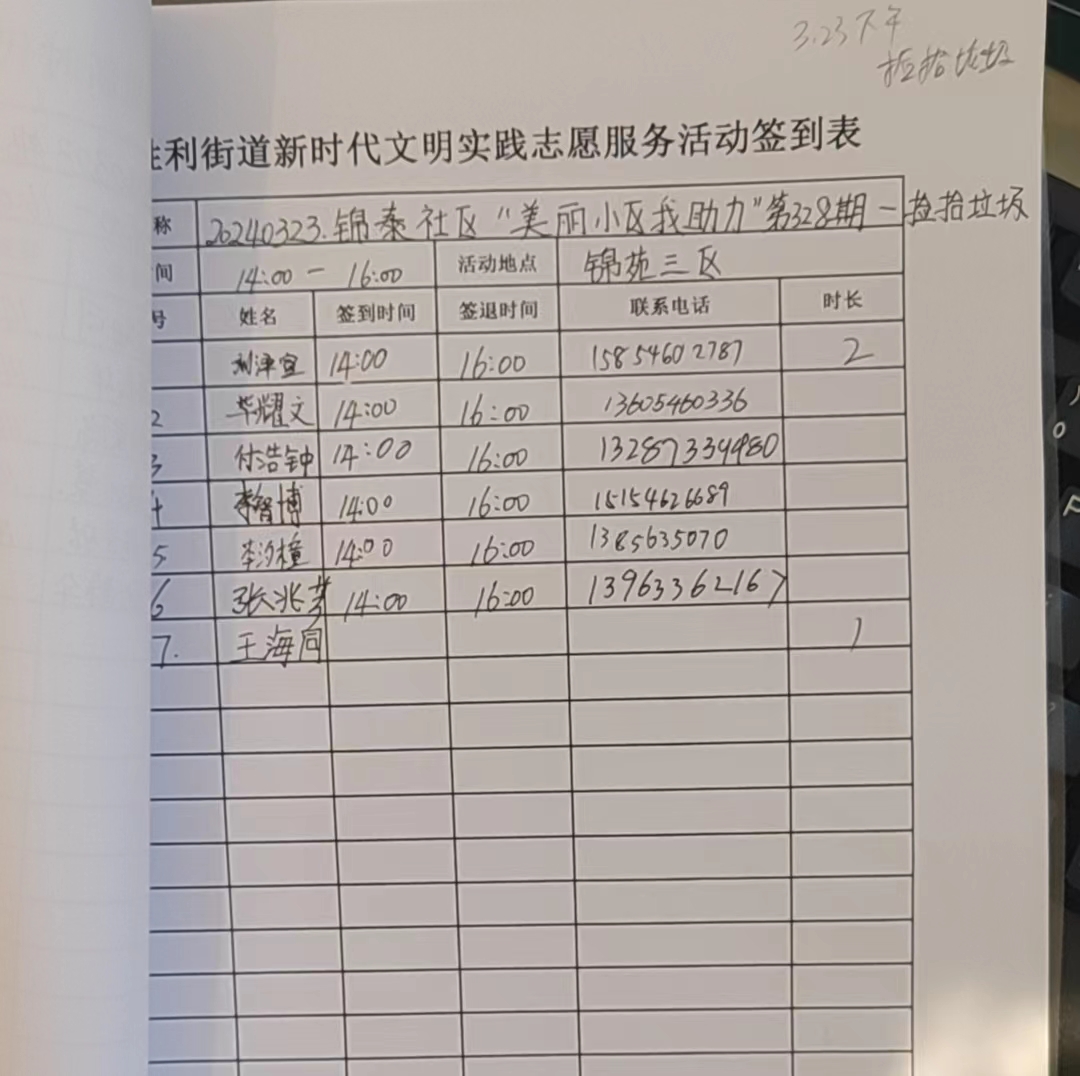 3.23下午
捡拾垃圾
胜利街道新时代文明实践志愿服务活动签到表
称 20240323.锦泰社区“美丽小区我助力”第328期－捡拾垃圾
间 14:00 － 16:00 活动地点 锦苑三区
号 姓名 签到时间 签退时间 联系电话 时长
刘泽宜 14:00 16:00 15854602787 2
2 毕耀文 14:00 16:00 13605460336
3 付浩钟 14:00 16:00 13287334980
4 李智博 14:00 16:00 15154626689
5. 李汐橦 14:00 16:00 1385635070
6 张兆 14:00 16:00 13963362167
7. 王海同 1